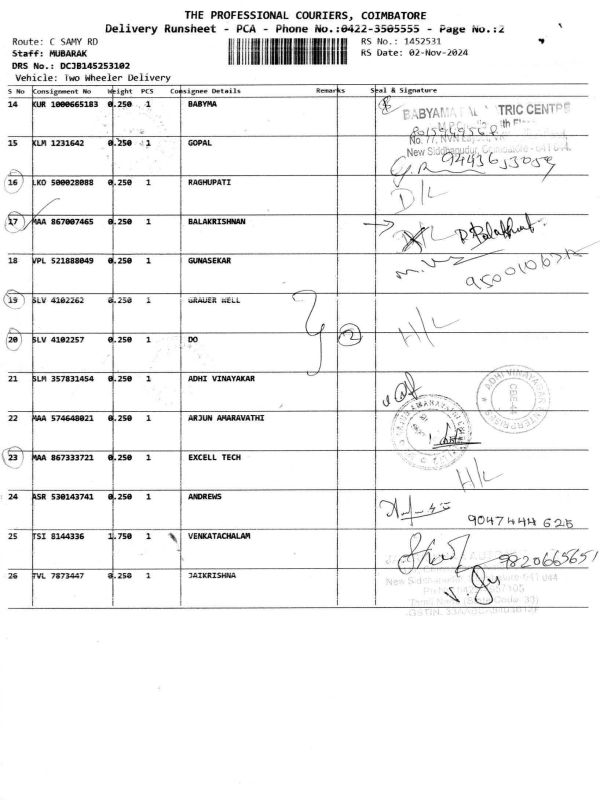 THE PROFESSIONAL COURIERS, COIMBATORE
Delivery Runsheet - PCA - Phone No.:0422-3505555 - Page No.:2
Route: C SAMY RD
RS No.: 1452531
Staff: MUBARAK
RS Date: 02-Nov-2024
DRS No.: DCJB145253102
Vehicle: Two Wheeler Delivery
S No Consignment No Weight PCS Consignee Details Remarks Seal & Signature
14 KUR 1000665183 0.250 1 BABYMA
BABYMA TRIC CENTRE
15 KLM 1231642 0.250 1 GOPAL
New Siddhapudur, Coimbatore - 641 044.
9443653059
16 LKO 500028088 0.250 1 RAGHUPATI D/L
17 MAA 867007465 0.250 1 BALAKRISHNAN D/L
18 VPL 521888049 0.250 1 GUNASEKAR
19 SLV 4102262 0.250 1 GRAUER WELL
20 SLV 4102257 0.250 1 DO 2 H/L
21 SLM 357831454 0.250 1 ADHI VINAYAKAR
ADHI VINAYAGAR ENTERPRISES CBE-44
22 MAA 574648021 0.250 1 ARJUN AMARAVATHI
23 MAA 867333721 0.250 1 EXCELL TECH H/L
24 ASR 530143741 0.250 1 ANDREWS
9047444625
25 TSI 8144336 1.750 1 VENKATACHALAM
9820665651
26 TVL 7873447 0.250 1 JAIKRISHNA